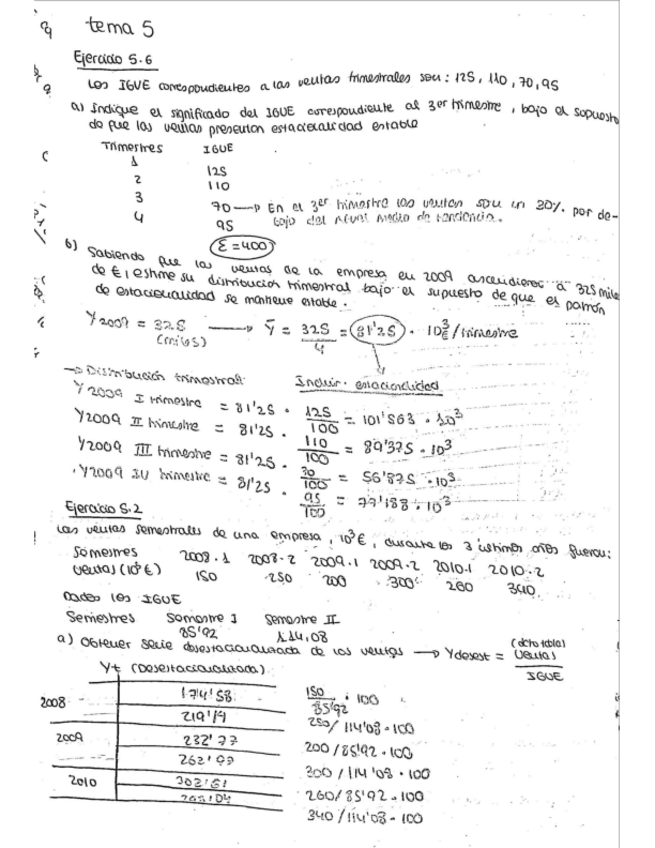 tema 5
Ejercicio 5.6
Los IGUE correspondientes a las ventas trimestrales son: 125, 110, 70, 95
a) Indique el significado del IGUE correspondiente al 3er trimestre, bajo el supuesto
de que las ventas presentan estacionalidad estable
Trimestres IGUE
1 125
2 110
3 70 → En el 3er trimestre las ventas son un 30% por de-
4 95 bajo del nivel medio de tendencia.
Σ = 400
b) Sabiendo que las ventas de la empresa en 2009 ascendieron a 325 miles
de € estime su distribución trimestral bajo el supuesto de que el patrón
de estacionalidad se mantiene estable.
Y2009 = 325 → Ȳ = 325/4 = 81'25 · 10³ €/trimestre
(miles)
→ Distribución trimestral: Incluir estacionalidad
Y2009 I trimestre = 81'25 · 125/100 = 101'563 · 10³
Y2009 II trimestre = 81'25 · 110/100 = 89'375 · 10³
Y2009 III trimestre = 81'25 · 70/100 = 56'875 · 10³
Y2009 IV trimestre = 81'25 · 95/100 = 77'188 · 10³
Ejercicio 5.2
Las ventas semestrales de una empresa, 10³€, durante los 3 últimos años fueron:
Semestres 2008.1 2008.2 2009.1 2009.2 2010.1 2010.2
Ventas (10³€) 150 250 200 300 260 340
Dados los IGUE
Semestres Semestre I Semestre II
85'92 114,08
a) Obtener serie desestacionalizada de las ventas → Ydesest = Ventas (dicha tabla) / IGUE
Yt (Desestacionalizada)
2008 174'58 150/85'92 · 100
219'14 250/114'08 · 100
2009 232'77 200/85'92 · 100
262'97 300/114'08 · 100
2010 302'61 260/85'92 · 100
340/114'08 · 100